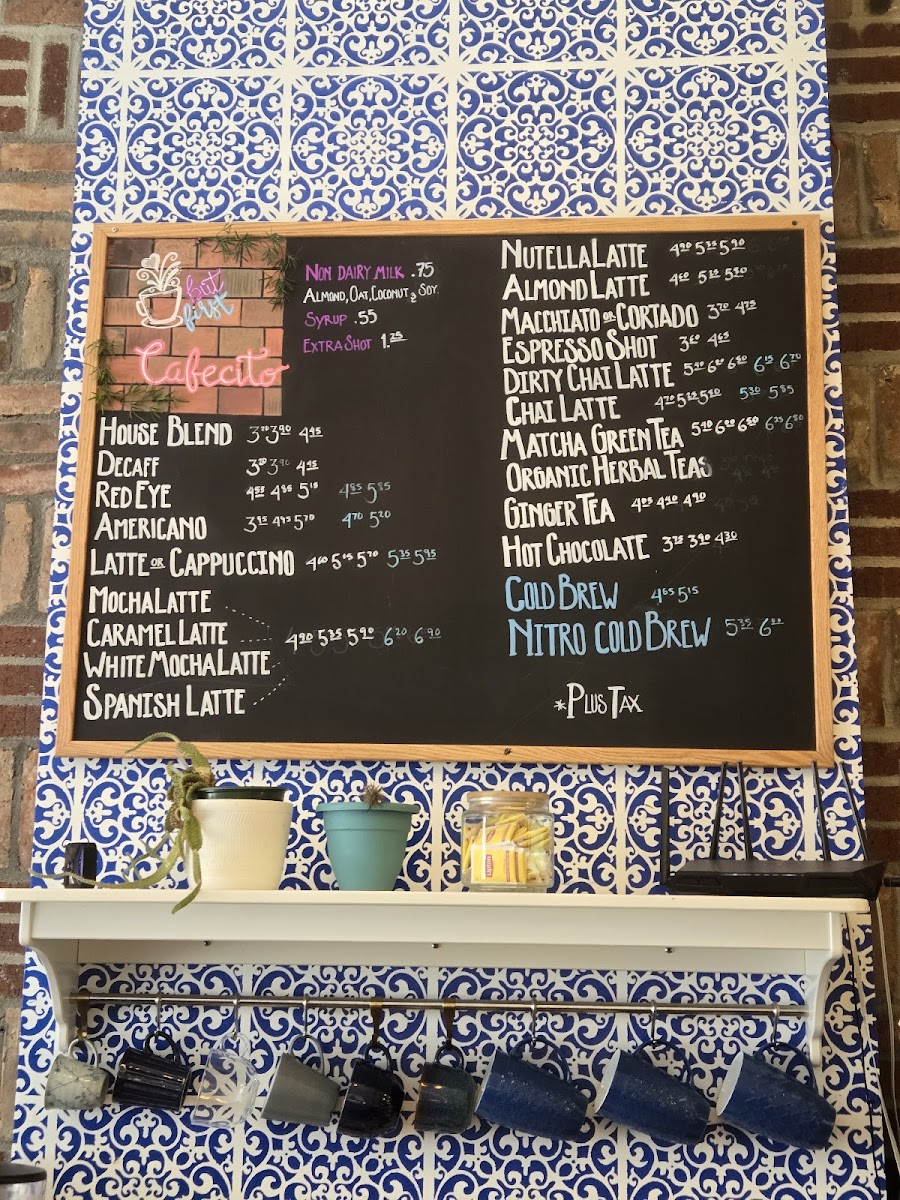 but
first
Cafecito
NON DAIRY MILK .75
ALMOND, OAT, COCONUT & SOY
SYRUP .55
EXTRA SHOT 1.25
HOUSE BLEND 3.70 3.90 4.45
DECAFF 3.70 3.90 4.45
RED EYE 4.55 4.85 5.15 4.85 5.85
AMERICANO 3.95 4.45 5.70 4.70 5.20
LATTE OR CAPPUCCINO 4.60 5.45 5.70 5.35 5.95
MOCHA LATTE
CARAMEL LATTE 4.90 5.35 5.90 6.20 6.90
WHITE MOCHA LATTE
SPANISH LATTE
NUTELLA LATTE 4.90 5.35 5.90
ALMOND LATTE 4.60 5.35 5.80
MACCHIATO OR CORTADO 3.70 4.75
ESPRESSO SHOT 3.60 4.65
DIRTY CHAI LATTE 6.15 6.70
CHAI LATTE 5.30 5.85
MATCHA GREEN TEA
ORGANIC HERBAL TEAS
GINGER TEA 4.05 4.40 4.90
HOT CHOCOLATE 3.75 3.90 4.30
COLD BREW 4.65 5.15
NITRO COLD BREW 5.35 6.00
*PLUS TAX